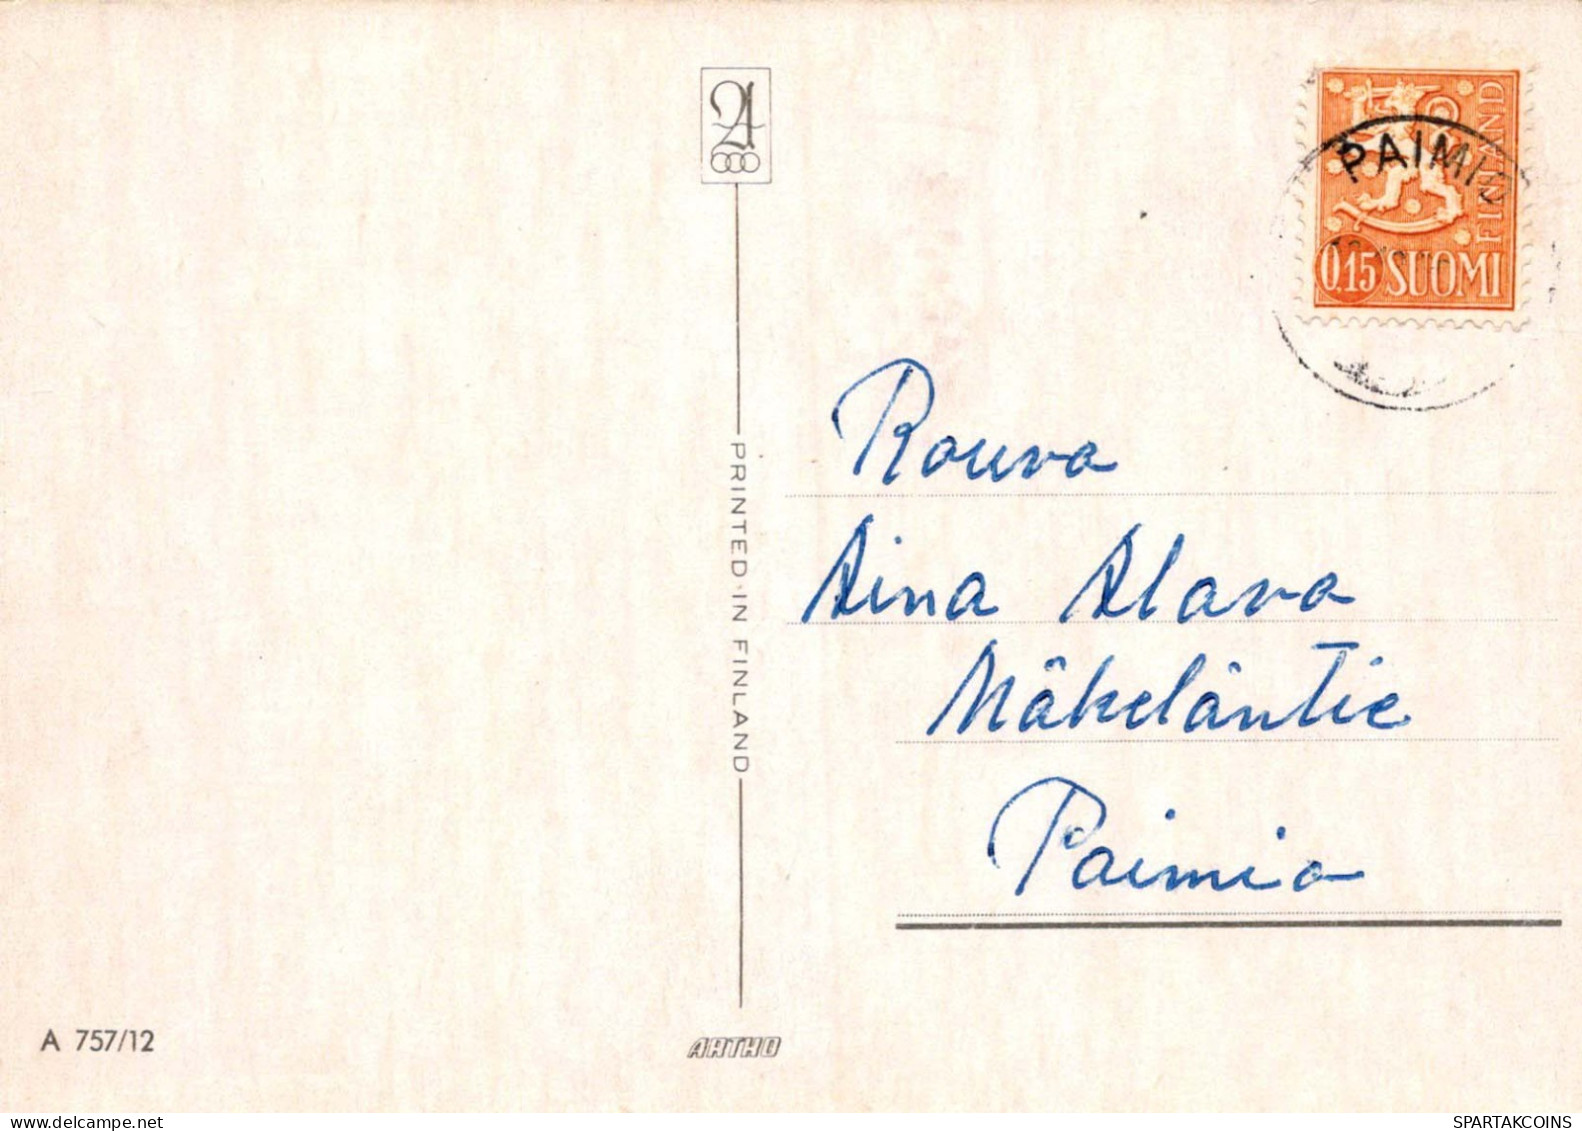 PAIMIO
FINLAND
0,15 SUOMI
PRINTED IN FINLAND
Rouva
Aina Alava
Mäkeläntie
Paimio
A 757/12
ARTKO
SPARTAKCOINS.COM